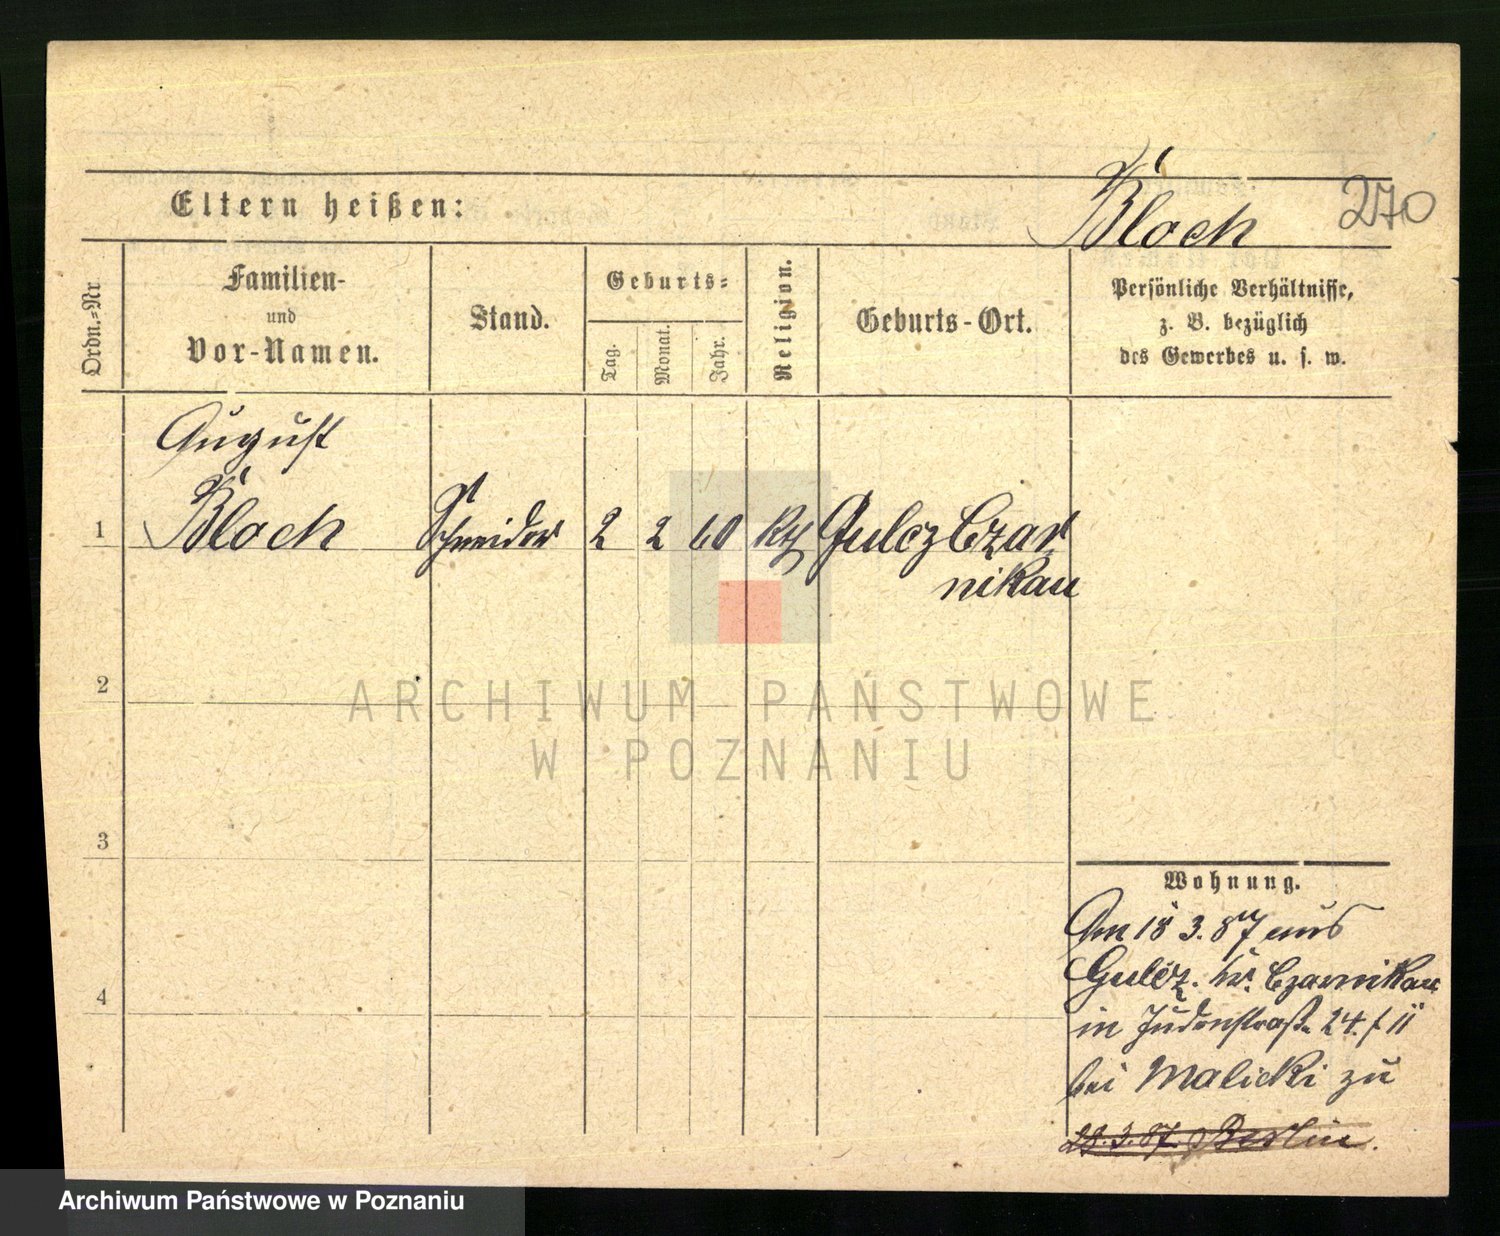 Bloch 270
Eltern heißen:
Ordn.=Nr.
Familien-
und
Vor-Namen.
Stand.
Geburts=
Tag.
Monat.
Jahr.
Religion.
Geburts-Ort.
Persönliche Verhältnisse,
z. B. bezüglich
des Gewerbes u. s. w.
August
1 Bloch Schneider 2 2 60 kth Gulcz Czar
nikau
2
3
4
Wohnung.
Am 18 3. 87 aus
Gulcz. Kr. Czarnikau
in Judenstraße 24. / II
bei Malicki zu
28.3.87. Berlin.
ARCHIWUM PAŃSTWOWE
W POZNANIU
Archiwum Państwowe w Poznaniu